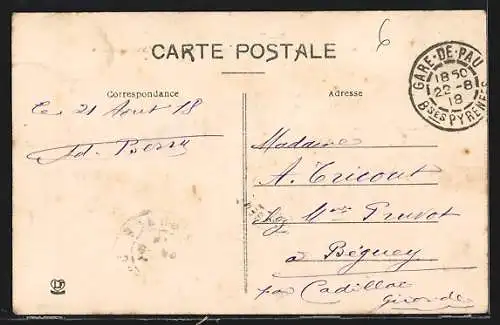 CARTE POSTALE
6
Correspondance
Adresse
GARE-DE-PAU
18 50
22-8
18
Bses PYRENEES
Le 21 Aout 18
Ad.
Madame
A. Tricout
chez Mme Pruvot
à Béguey
par Cadillac
Gironde